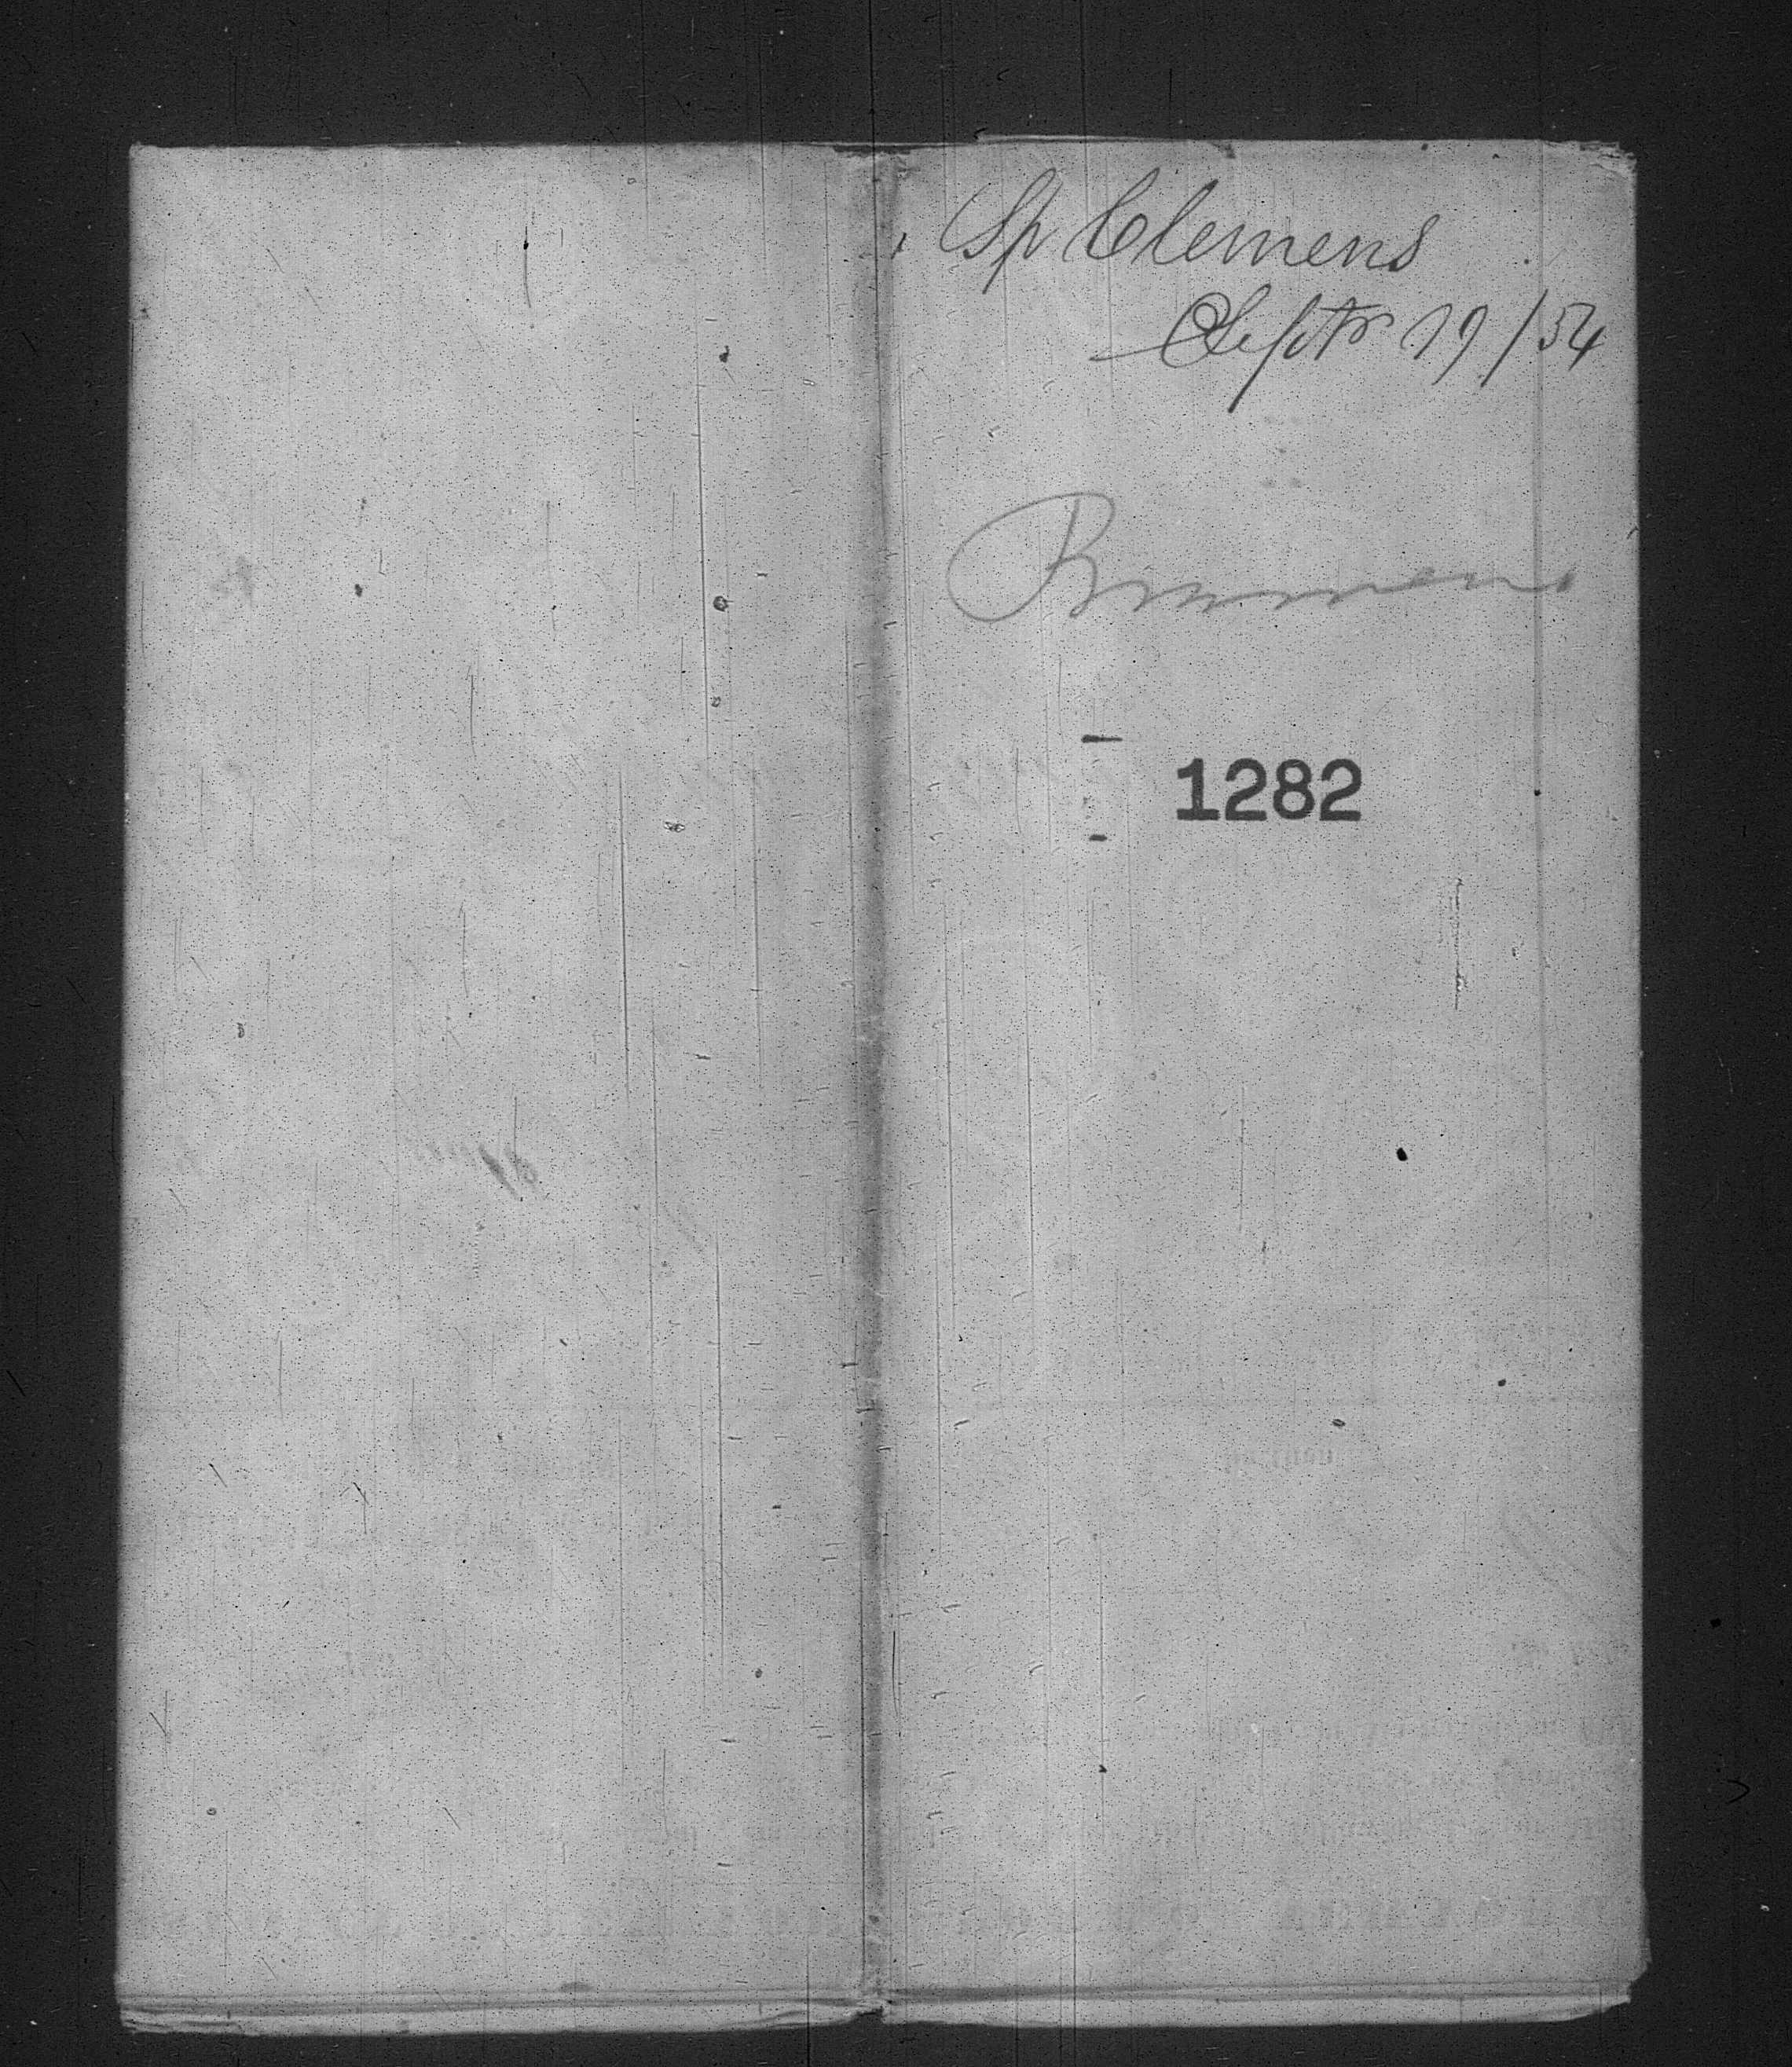 Sp Clemens
Septr 19/54
Bremen
1282